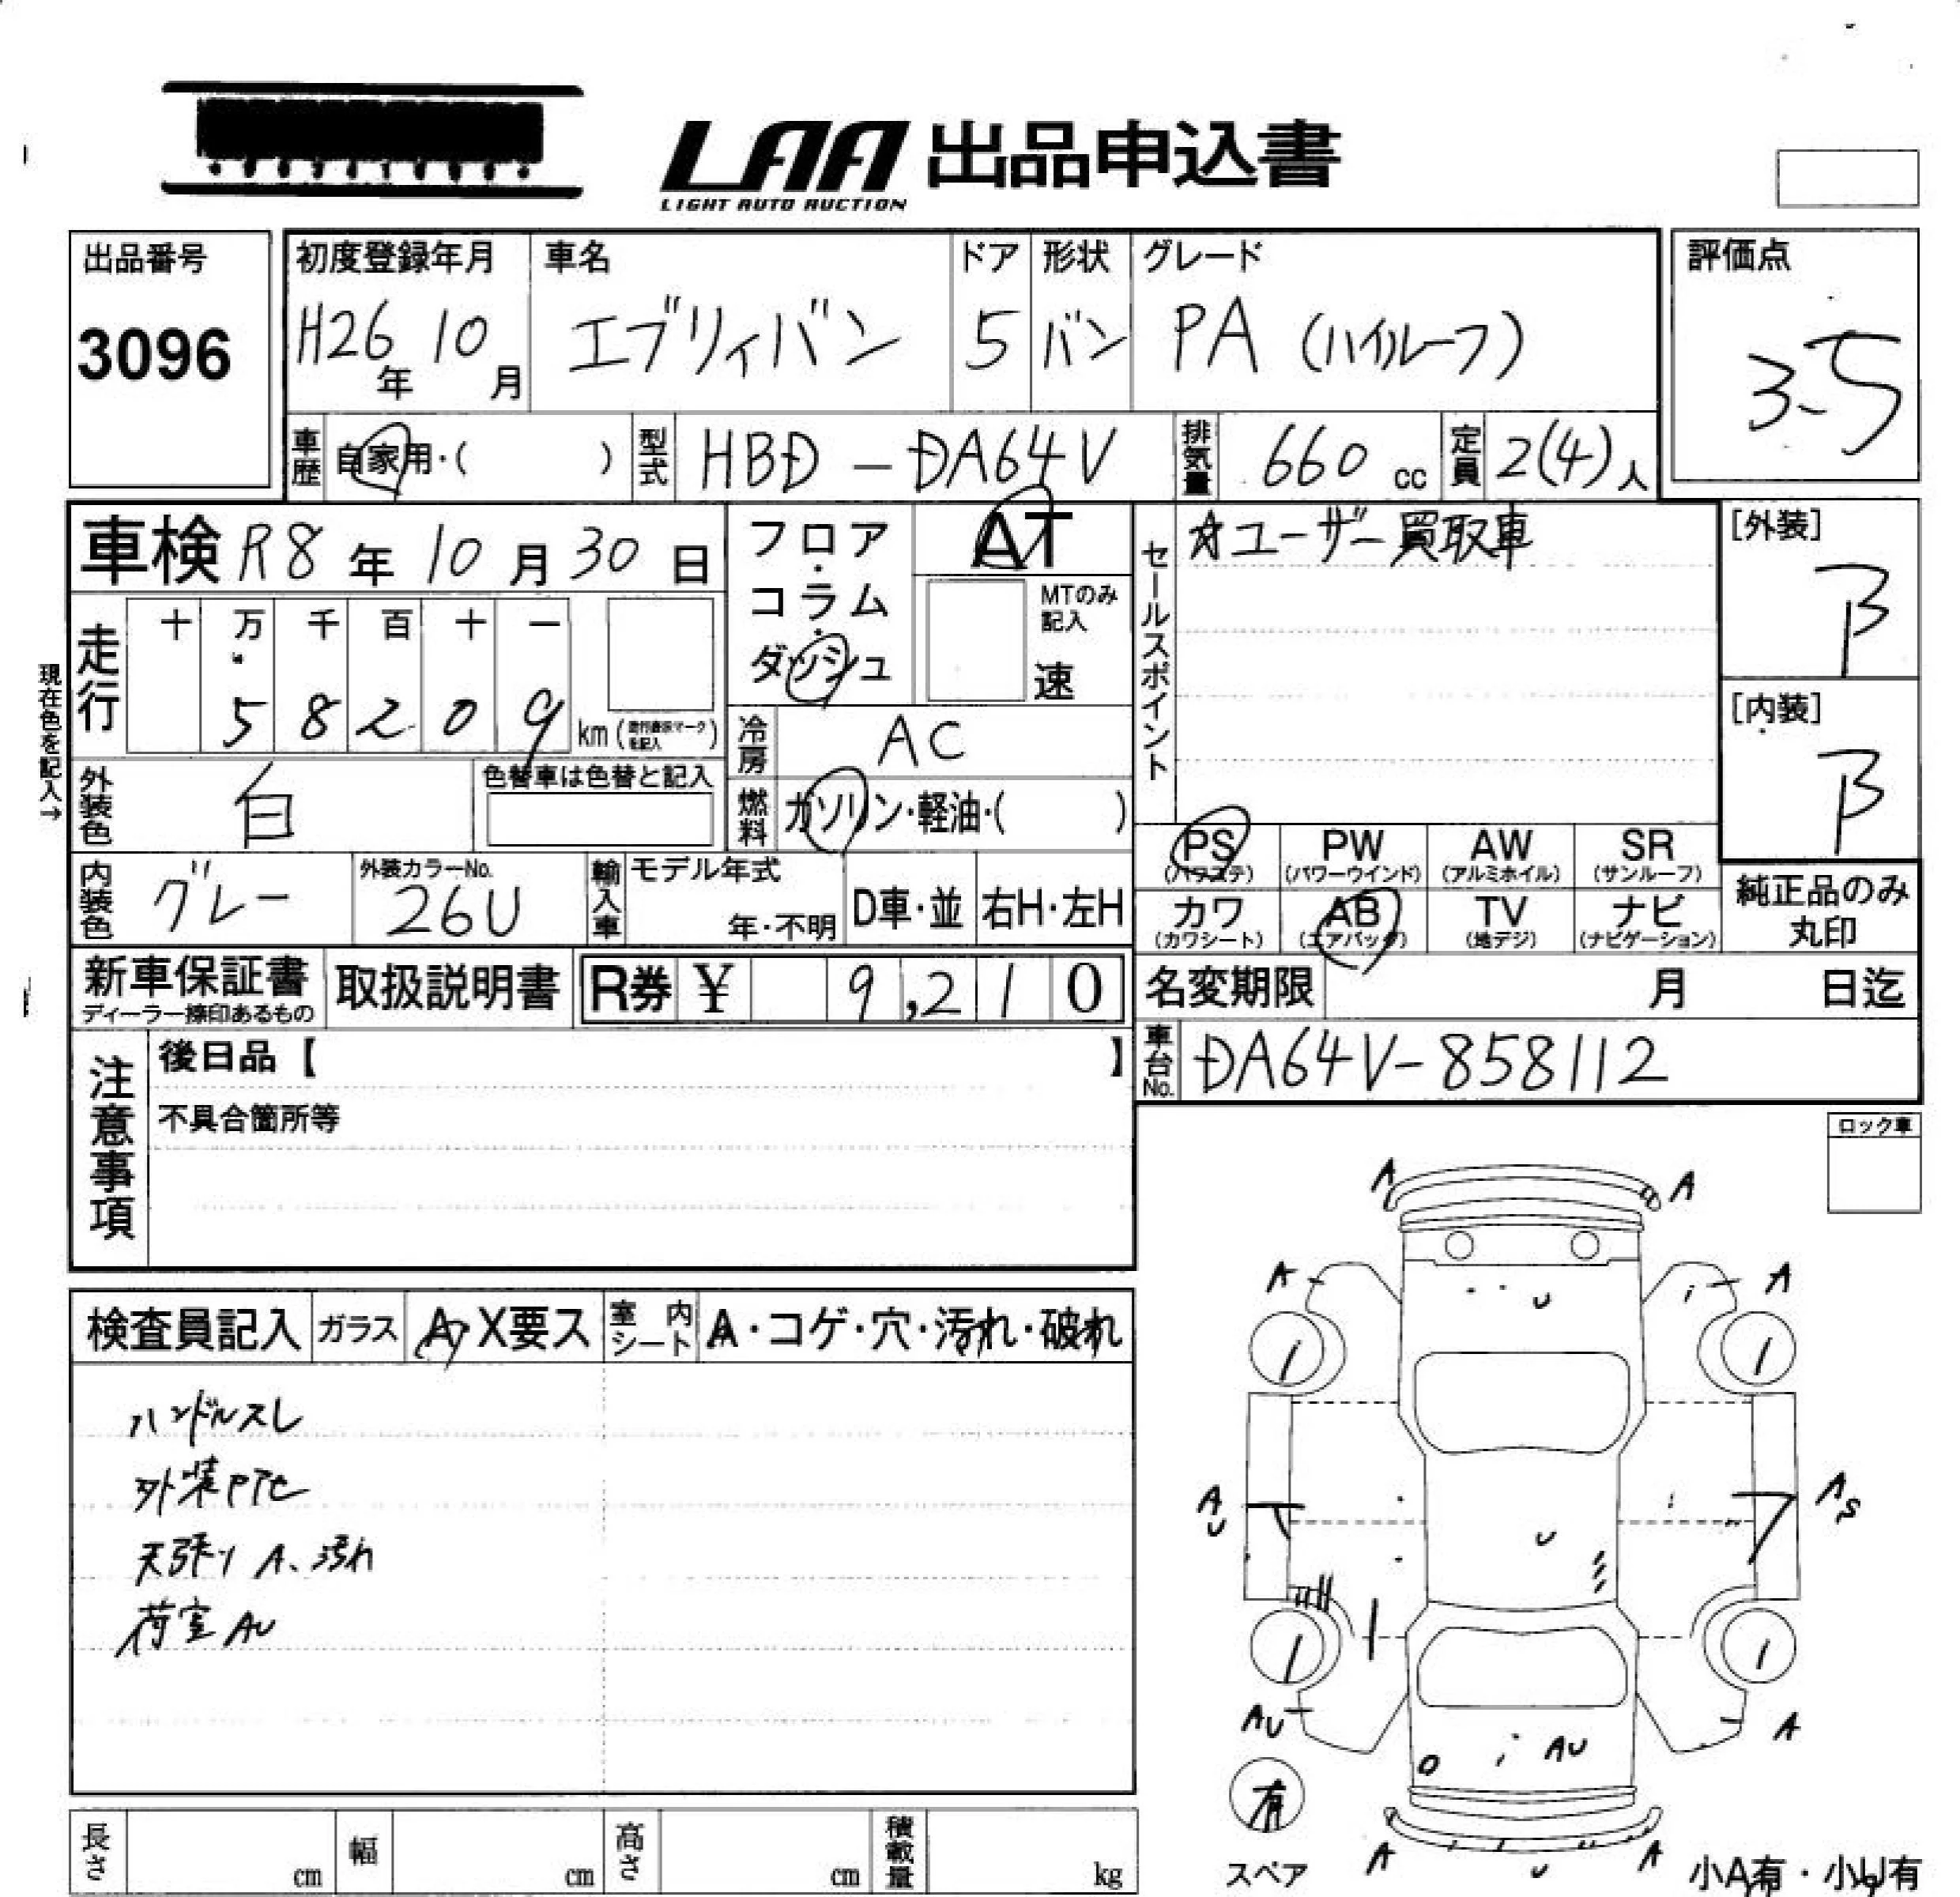 LAA 出品申込書
LIGHT AUTO AUCTION
出品番号
3096
初度登録年月
H26年 10月
車名
エブリィバン
ドア
5
形状
バン
グレード
PA (ハイルーフ)
評価点
3.5
車歴 自家用・( )
型式 HBD-DA64V
排気量 660 cc
定員 2(4)人
車検 R8年 10月 30日
フロア・コラム・ダッシュ
AT
MTのみ記入
速
セールスポイント
☆ユーザー買取車
[外装]
B
[内装]
B
現在色を記入→
走行
十 万 千 百 十 一
5 8 2 0 9 km
冷房 AC
外装色 白
色替車は色替と記入
燃料 ガソリン・軽油・( )
内装色 グレー
外装カラーNo.
26U
輸入車
モデル年式
年・不明
D車・並
右H・左H
PS (パワステ)
PW (パワーウインド)
AW (アルミホイル)
SR (サンルーフ)
カワ (カワシート)
AB (エアバッグ)
TV (地デジ)
ナビ (ナビゲーション)
純正品のみ丸印
新車保証書
ディーラー捺印あるもの
取扱説明書
R券 ¥ 9,210
名変期限 月 日迄
車台No. DA64V-858112
注意事項
後日品【 】
不具合箇所等
ロック車
検査員記入
ガラス A・X要ス
室内シート A・コゲ・穴・汚れ・破れ
ハンドルスレ
天張り A、汚れ
荷室 AU
A A
A A
U
A U
A S
U
AU A
AU
有
スペア
A U A
小A有・小U有
長さ cm
幅 cm
高さ cm
積載量 kg